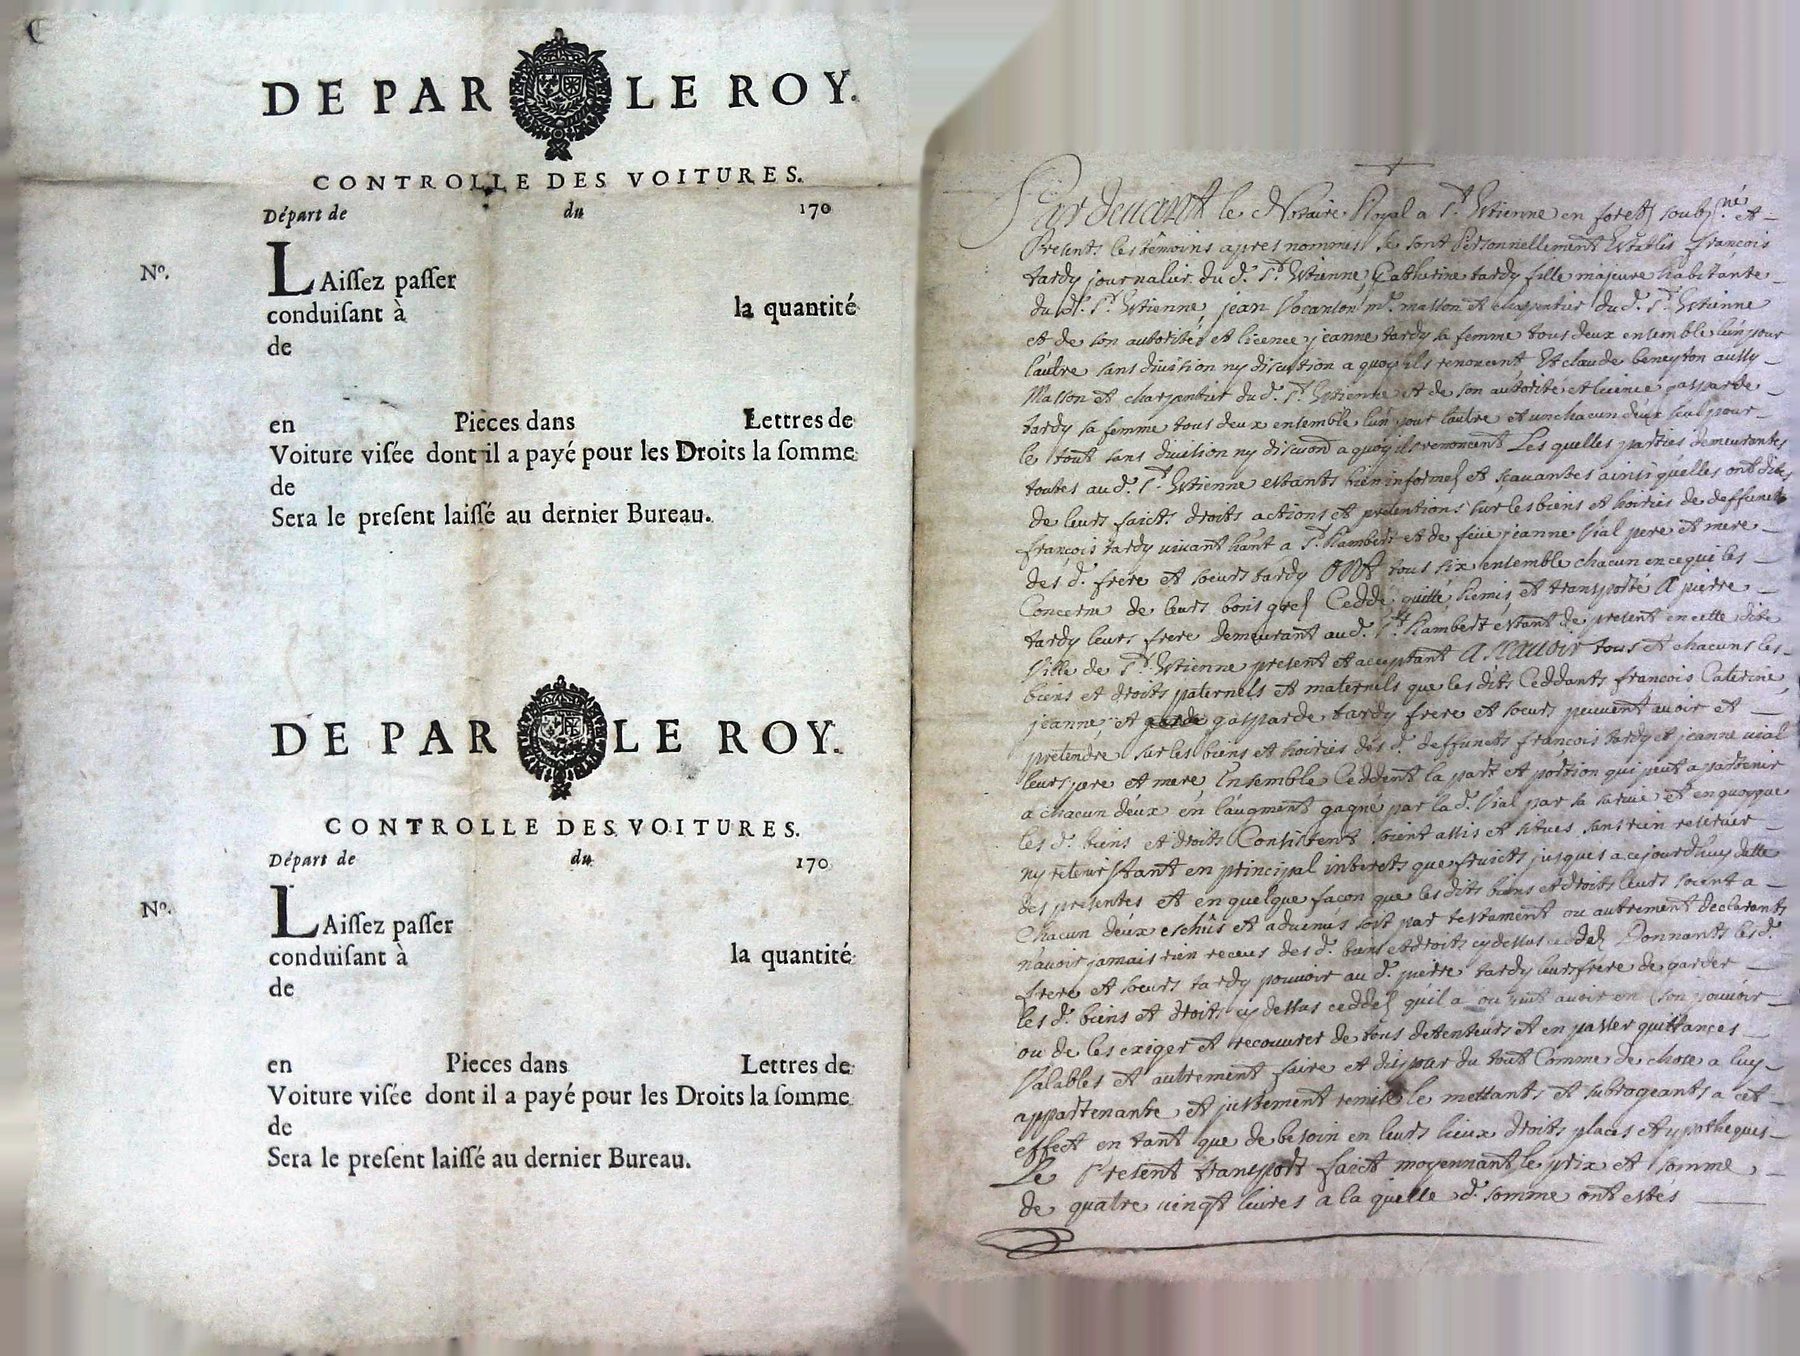 DE PAR LE ROY.
CONTROLLE DES VOITURES.
Départ de du 170
Nº. LAiſſez paſſer
conduiſant à la quantité
de
en Pieces dans Lettres de
Voiture viſée dont il a payé pour les Droits la ſomme
de
Sera le preſent laiſſé au dernier Bureau.
DE PAR LE ROY.
CONTROLLE DES VOITURES.
Départ de du 170
Nº. LAiſſez paſſer
conduiſant à la quantité
de
en Pieces dans Lettres de
Voiture viſée dont il a payé pour les Droits la ſomme
de
Sera le preſent laiſſé au dernier Bureau.
Par devant le Notaire Royal a St. Estienne en forets soubsné et
Presents les témoins apres nommés se sont Personnellement Establis francois
tardy journalier du d. St. Estienne, Catherine tardy fille majeure habitante
du d. St. Estienne, jean Vocanson mr. masson et charpentier du d. St. Estienne
et de son autorité et licence jeanne tardy sa femme tous deux ensemble lun pour
lautre sans division ny discution a quoy ils renoncent Et claude beneyton aussy
Masson et charpentier du d. St. Estienne et de son autorité et licence gasparde
tardy sa femme tous deux ensemble lun pour lautre et un chacun deux seul pour
le tout sans division ny discution a quoy ils renoncent Les quelles parties demeurantes
toutes au d. St. Estienne estants bien informés et scavantes ainsi quelles ont dit
de leurs faicts droits actions et pretentions sur les biens et hoiries de deffunct
francois tardy vivant hant a St. Rambert et de feüe jeanne Vial pere et mere
des d. frere et soeurs tardy ONT tous six ensemble chacun en ce qui les
Concerne de leurs bons gres Ceddé quitté remis et transporté A pierre
tardy leurs frere demeurant au d. St. Rambert estant de present en cette dite
Ville de St. Estienne present et acceptant Ascavoir tous et chacuns les
biens et droits paternels et maternels que les dits Ceddants francois Caterine
jeanne, et gasparde tardy frere et soeurs peuvent avoir et
pretendre sur les biens et hoiries des d. deffuncts francois tardy et jeanne vial
leurs pere et mere, Ensemble Ceddent la part et portion qui peut apartenir
a chacun deux en laugment gagné par la d. Vial par sa survie et en quoy que
les d. biens et droits Consistent soient assis et situes sans rien reserver
ny retenir tant en principal interets que fruicts jusques a cejourdhuy datte
des presentes et en quelque façon que les dits biens et droits leurs soient a
Chacun deux eschûs et advenus soit par testament ou autrement declarants
navoir jamais rien receus des d. biens et droits cy dessus ceddes Donnants les d.
frere et soeurs tardy pouvoir au d. pierre tardy leurs frere de garder
les d. biens et droits cy dessus ceddes quil a ou peut avoir en son pouvoir
ou de les exiger et recouvrer de tous detenteurs et en passer quittances
Valables et autrement faire et disposer du tout Comme de chose a luy
appartenante et justement remise le mettants et subrogeants a cet
effect en tant que de besoin en leurs lieux droits places et ypotheques
Le Present transport faict moyennant le prix et somme
de quatre vingt livres a la quelle d. somme ont estés